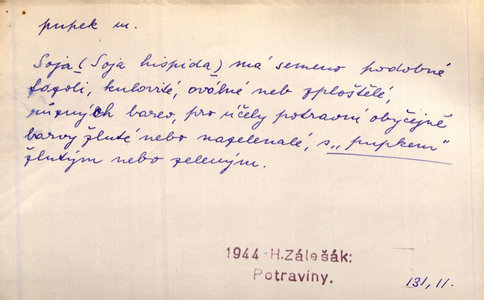 pupek m.
Soja (Soja hispida) má semeno podobné
fazoli, kulovité, oválné neb zploštělé,
různých barev, pro účely potravní obyčejně
barvy žluté nebo nazelenalé, s „pupkem“
žlutým nebo zeleným.
1944-H.Zálešák:
Potraviny.
131, 11.